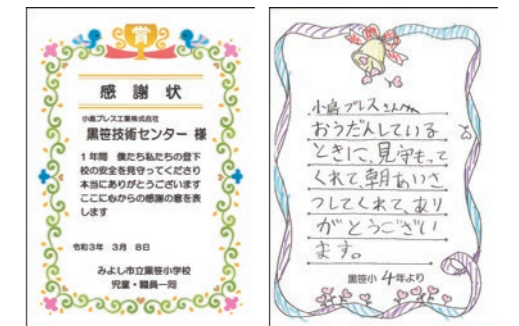 賞
感謝状
小島プレス工業株式会社
黒笹技術センター 様
1年間 僕たち私たちの登下
校の安全を見守ってくださり
本当にありがとうございます
ここに心からの感謝の意を表
します
令和3年 3月 8日
みよし市立黒笹小学校
児童・職員一同
小島プレスさんへ
おうだんしている
ときに、見守もって
くれて、朝あいさ
つしてくれて、あり
がとうござい
ます。
黒笹小 4年より